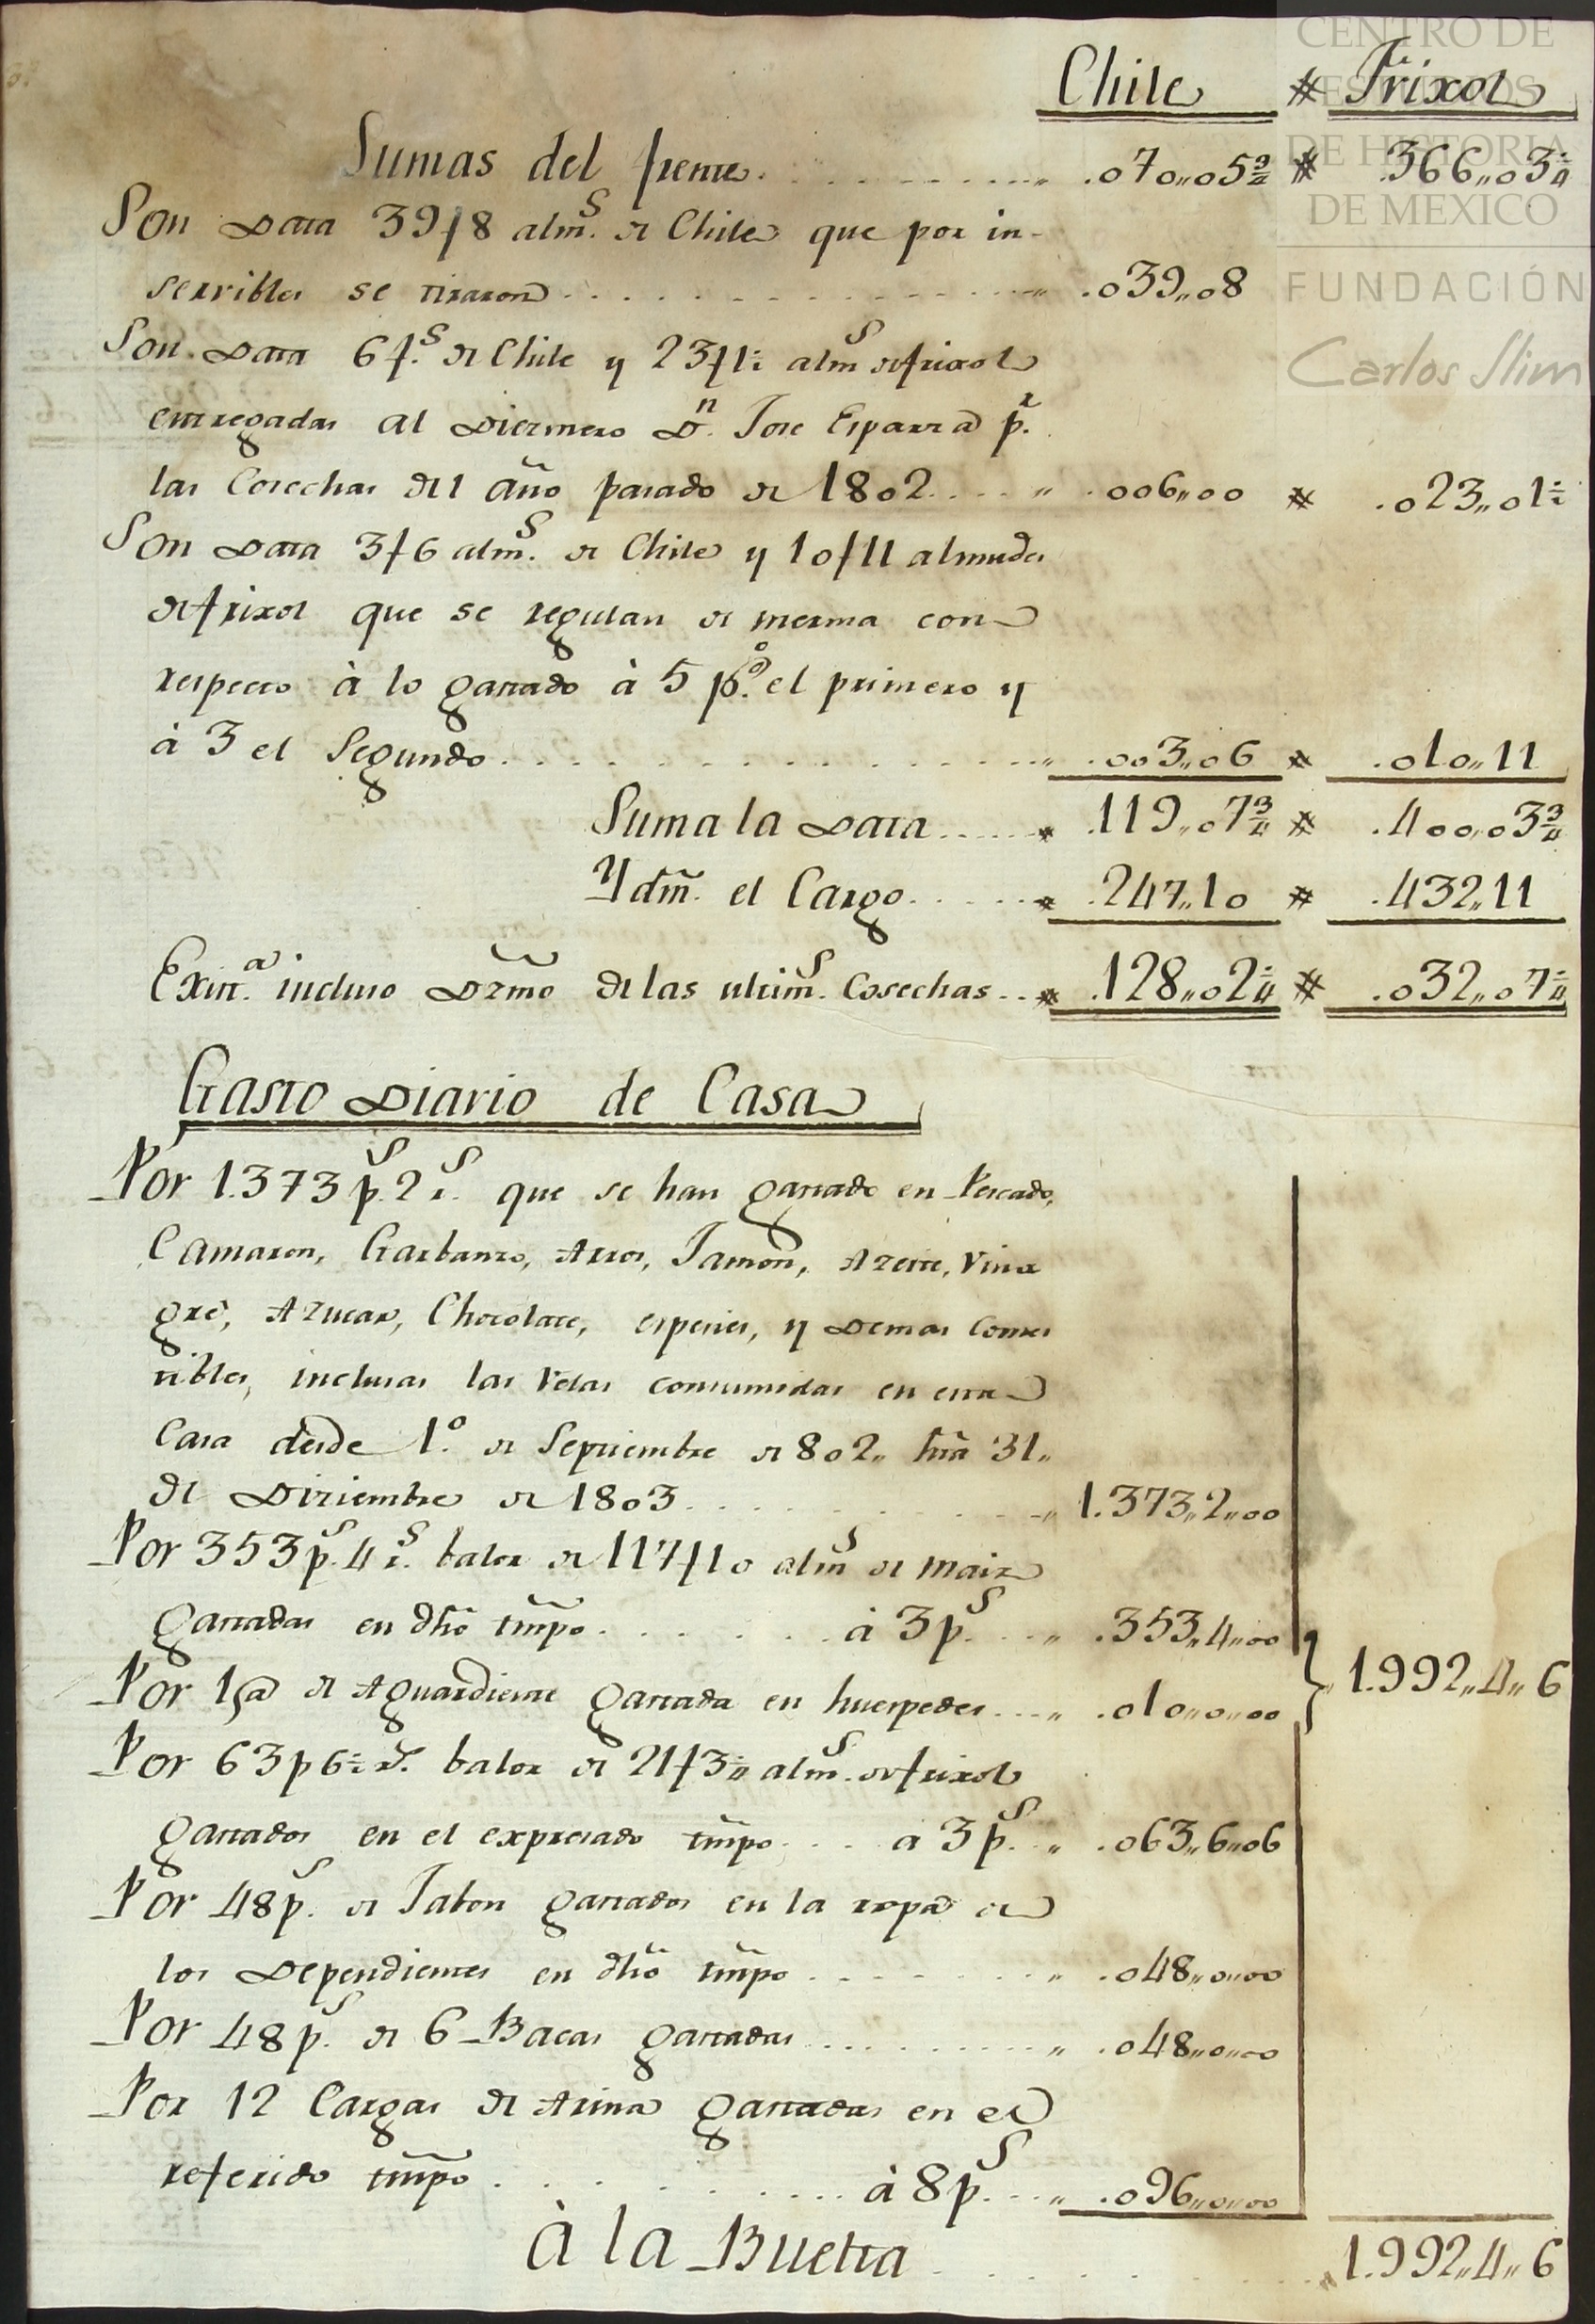 CENTRO DE ESTUDIOS DE HISTORIA DE MEXICO
FUNDACIÓN
Carlos Slim
Chile # Frixol
Sumas del frente . . . „ .070„05¾ # .366„03¼
Son Data 39f8 alm.s de Chile que por in-
servibles se tiraron . . . „ .039„08
Son Data 6f.s de Chile y 23f1½ alm.s de frixol
entregadas al Diezmero D.n Jose Esparza p.r
las Cosechas del año pasado de 1802 . . . „ .006„00 # .023„01½
Son Data 3f6 alm.s de Chile y 10f11 almudes
de frixol que se regulan de merma con
respecto à lo gastado à 5 p%. el primero y
à 3 el Segundo . . . „ .003„06 # .010„11
Suma la Data . . . # .119„07¾ # .400„03¾
Ydm. el Cargo . . . # .247„10 # .432„11
Exist.a incluso Dzmo de las ultim.s Cosechas . . # .128„02¼ # .032„07¼
Gasto Diario de Casa
Por 1.373 p.s 2 r.s que se han gastado en Pescado,
Camaron, Garbanzo, Arros, Jamon, Azeite, Vina
gre, Azucar, Chocolate, especies, y Demas Comes
tibles, inclusas las Velas consumidas en esta
Casa desde 1.o de Septiembre de 802„ hta 31„
de Diziembre de 1803 . . . „ 1.373„2„00
Por 353 p.s 4 r.s balor de 117f10 alm.s de maiz
gastadas en dho tmpo . . . à 3 p.s . . „ .353„4„00
Por 1 de Aguardiente gastada en huespedes . . . „ .010„0„00 } „ 1.992„4„6
Por 63p 6½ r.s balor de 21f3¼ alm.s de frixol
gastados en el expresado tmpo . . . a 3 p.s . „ .063„6„06
Por 48 p.s de Jabon gastados en la ropa de
los Dependientes en dho tmpo . . . „ .048„0„00
Por 48 p.s de 6 Bacas gastadas . . . „ .048„0„00
Por 12 Cargas de Arina gastadas en el
referido tmpo . . . à 8 p.s . . „ .096„0„00
à la Buelta . . . „ 1.992„4„6